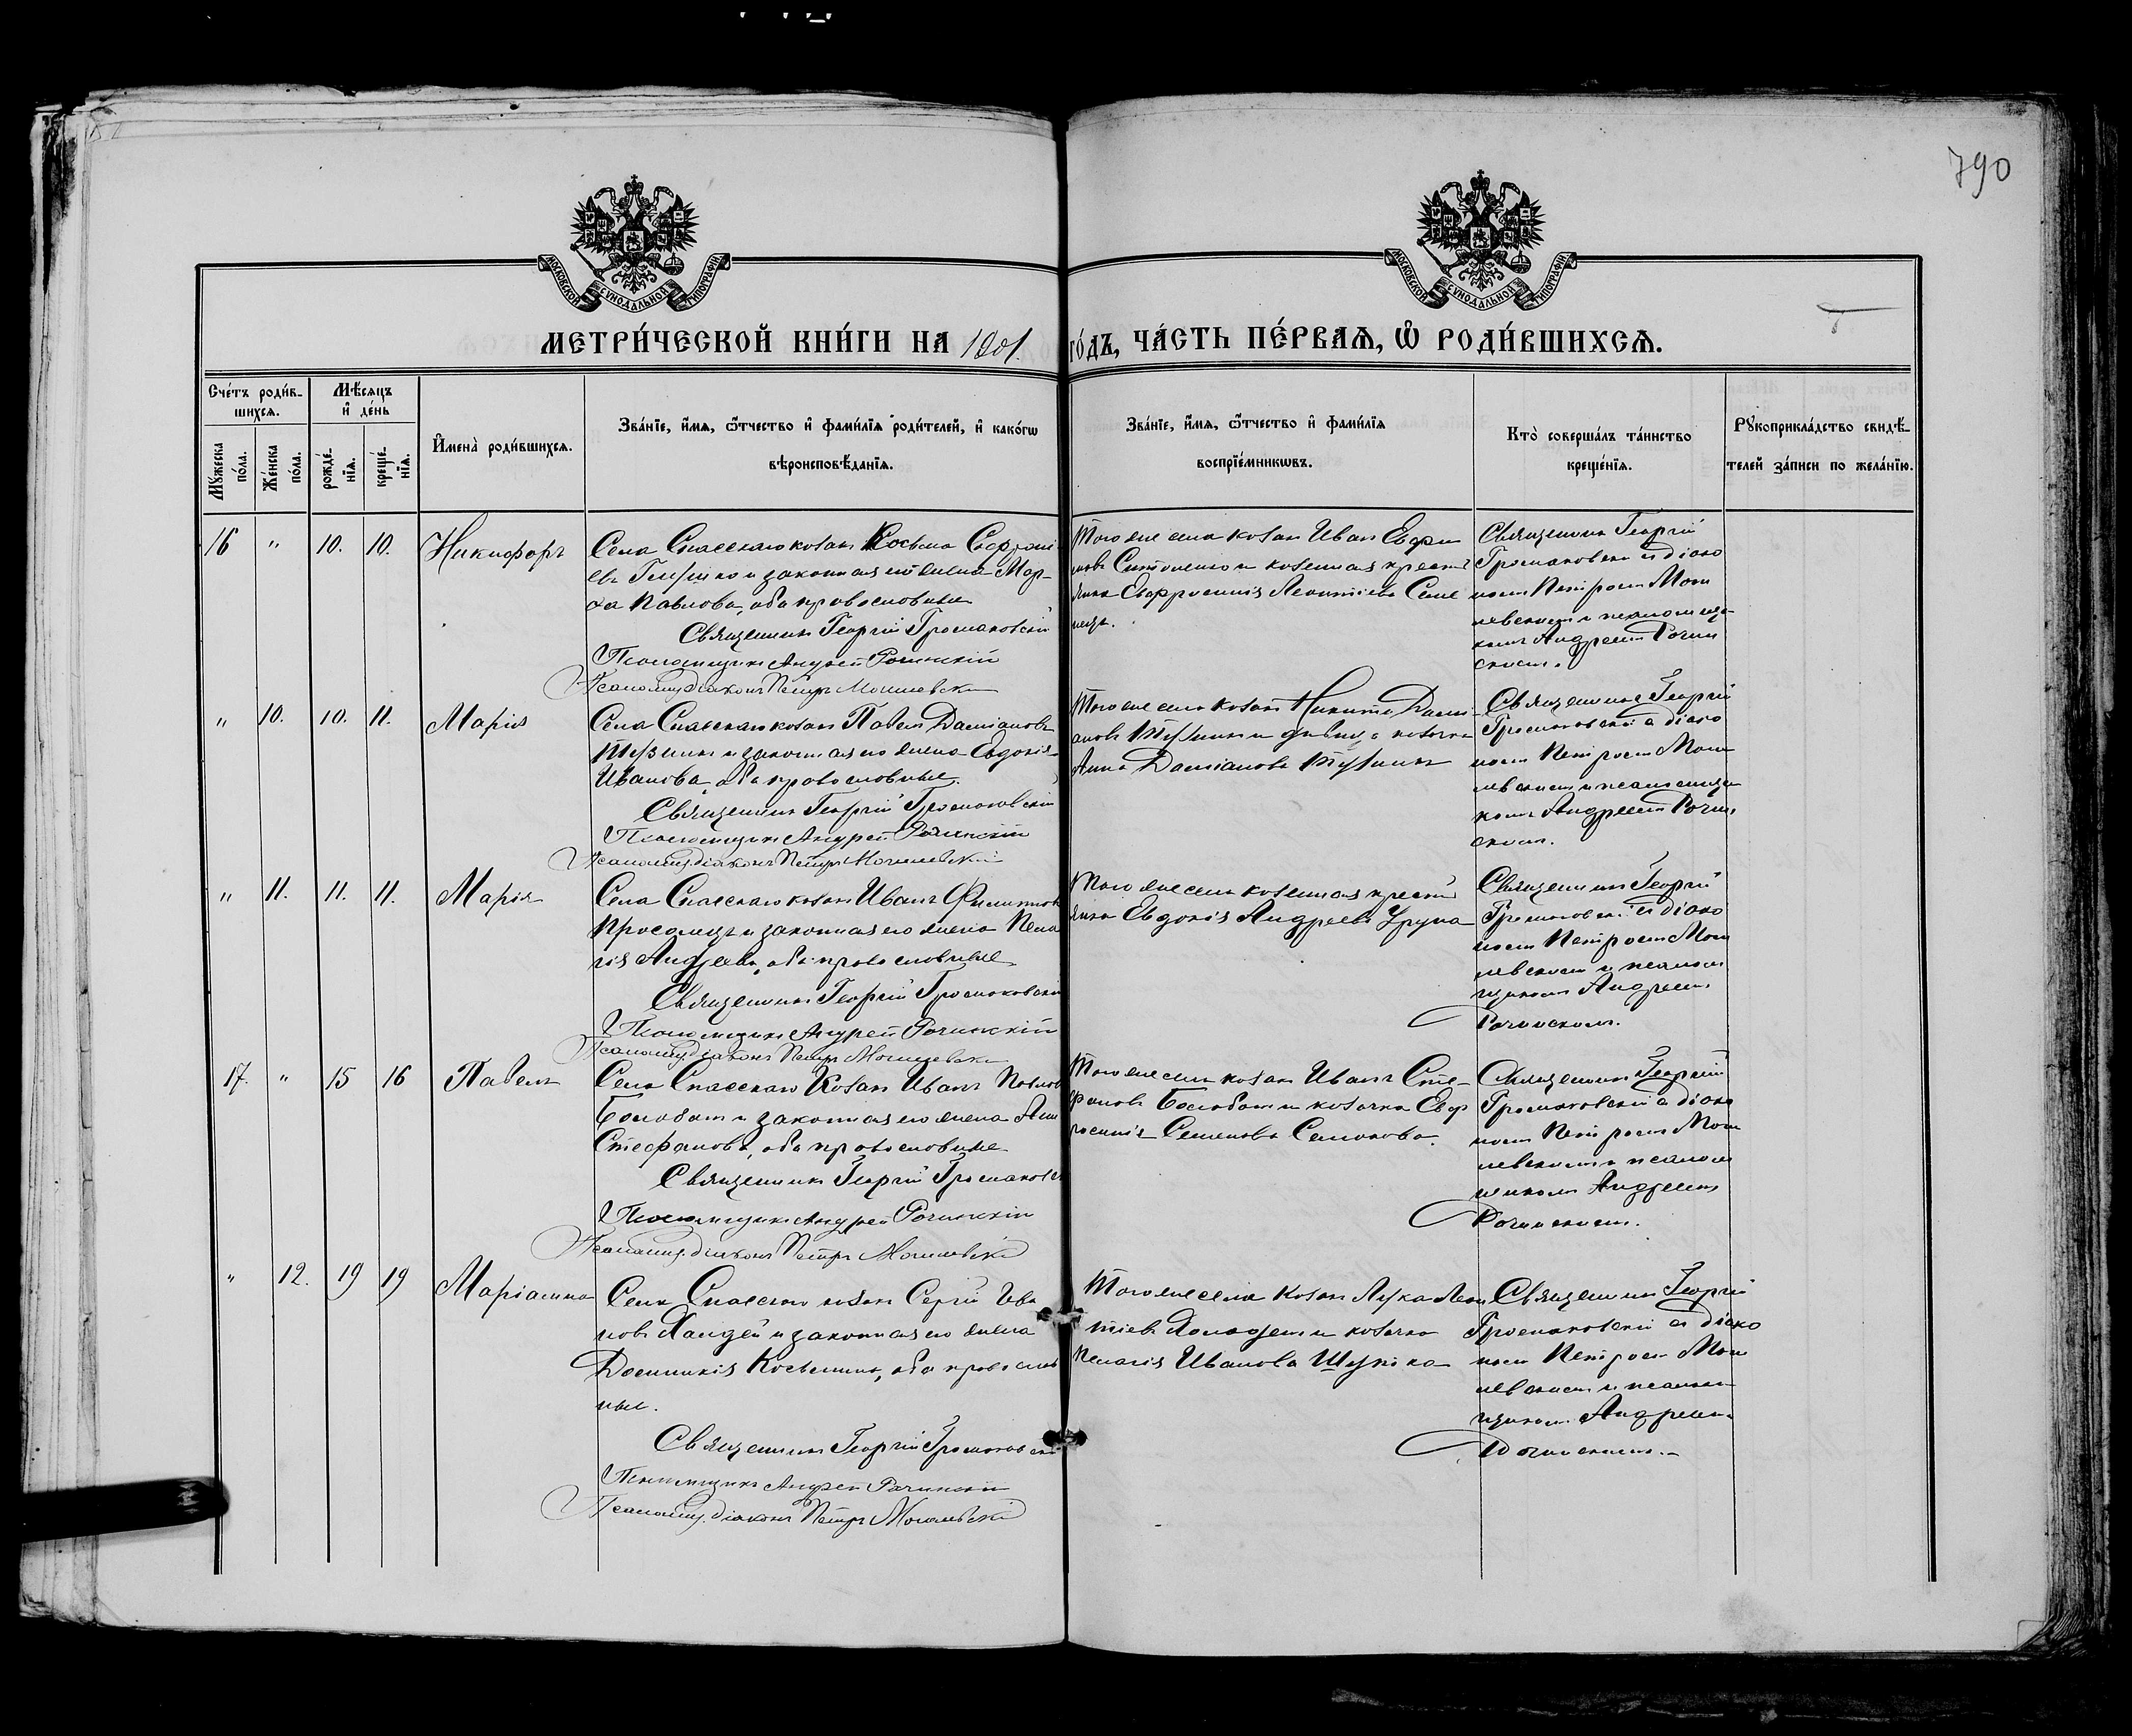 790
МОСКОВСКОЙ СѴНОДАЛЬНОЙ ТИПОГРАФІИ
МОСКОВСКОЙ СѴНОДАЛЬНОЙ ТИПОГРАФІИ
МЕТРИ́ЧЕСКОЙ КНИ́ГИ НА 1901. ГО́ДЪ, ЧА́СТЬ ПЕ́РВАѦ, Ѽ РОДИ́ВШИХСѦ.
Сче́тъ роди́в-
шихсѧ.
Мѣ́сѧцъ
и҆ де́нь
Мꙋ́жеска
по́ла.
Же́нска
по́ла.
рожде́-
нїѧ.
креще́-
нїѧ.
И҆мена̀ роди́вшихсѧ.
Зва́нїе, и҆́мѧ, ѻ҆́тчество и҆ фами́лїѧ роди́телей, и҆ како́гѡ
вѣроисповѣ́данїѧ.
Зва́нїе, и҆́мѧ, ѻ҆́тчество и҆ фами́лїѧ
воспрїе́мникѡвъ.
Кто̀ соверша́лъ та́инство
креще́нїѧ.
Рꙋкоприкла́дство свидѣ́-
телей за́писи по жела́нїю.
16 " 10. 10. Никифоръ
Села Спасскаго козакъ Косьма
и законная его жена Мар-
ѳа Павлова, оба православные
Священникъ Георгій Громаковскій
Псаломщикъ Андрей Рачинскій
Псаломщ. діаконъ Петръ Могилевскій
Того же села козакъ Иванъ
и козачья крестьянка Евфросинія Леонтіева
Священникъ Георгій
Громаковскій съ діако
номъ Петромъ Моги
левскимъ и псаломщи
комъ Андреемъ Рачин
скимъ.
" 10. 10. 11. Марія
Села Спасскаго козакъ Павелъ Даміановъ
и законная его жена Евдокія
Иванова, оба православные.
Священникъ Георгій Громаковскій
Псаломщикъ Андрей Рачинскій
Псаломщ. діаконъ Петръ Могилевскій
Того же села козакъ Никита Дамі-
ановъ и дѣвица козачка
Анна Даміанова
Священникъ Георгій
Громаковскій съ діако
номъ Петромъ Моги
левскимъ и псаломщи
комъ Андреемъ Рачин
скимъ.
" 11. 11. 11. Марія
Села Спасскаго козакъ Иванъ Филиппов
и законная его жена Пела
гія Андреева, оба православные
Священникъ Георгій Громаковскій
Псаломщикъ Андрей Рачинскій
Псаломщ. діаконъ Петръ Могилевскій
Того же села
Евдокія Андреева
Священникъ Георгій
Громаковскій съ діако
номъ Петромъ Моги
левскимъ и псалом
щикомъ Андреемъ
Рачинскимъ.
17. " 15 16 Павелъ
Села Спасскаго Козакъ Иванъ Павлов
и законная его жена Анн
Стефанова, оба православные
Священникъ Георгій Громаковск
Псаломщикъ Андрей Рачинскій
Псаломщ. діаконъ Петръ Могилевскій
Того же села козакъ Иванъ Сте-
фановъ и козачка Евф
росинія Семенова
Священникъ Георгій
Громаковскій съ діако
номъ Петромъ Моги
левскимъ и псалом
щикомъ Андреемъ
Рачинскимъ.
" 12. 19 19 Маріамна
Села Спасскаго козакъ Сергій Ива
новъ и законная его жена
Домникія Косьмина, оба православ
ные.
Священникъ Георгій Громаковскій
Псаломщикъ Андрей Рачинскій
Псаломщ. діаконъ Петръ Могилевскій
Того же села козакъ Лука Леон
тіевъ и козачка
Пелагія Иванова
Священникъ Георгій
Громаковскій съ діако
номъ Петромъ Моги
левскимъ и псалом
щикомъ Андреемъ
Рачинскимъ.